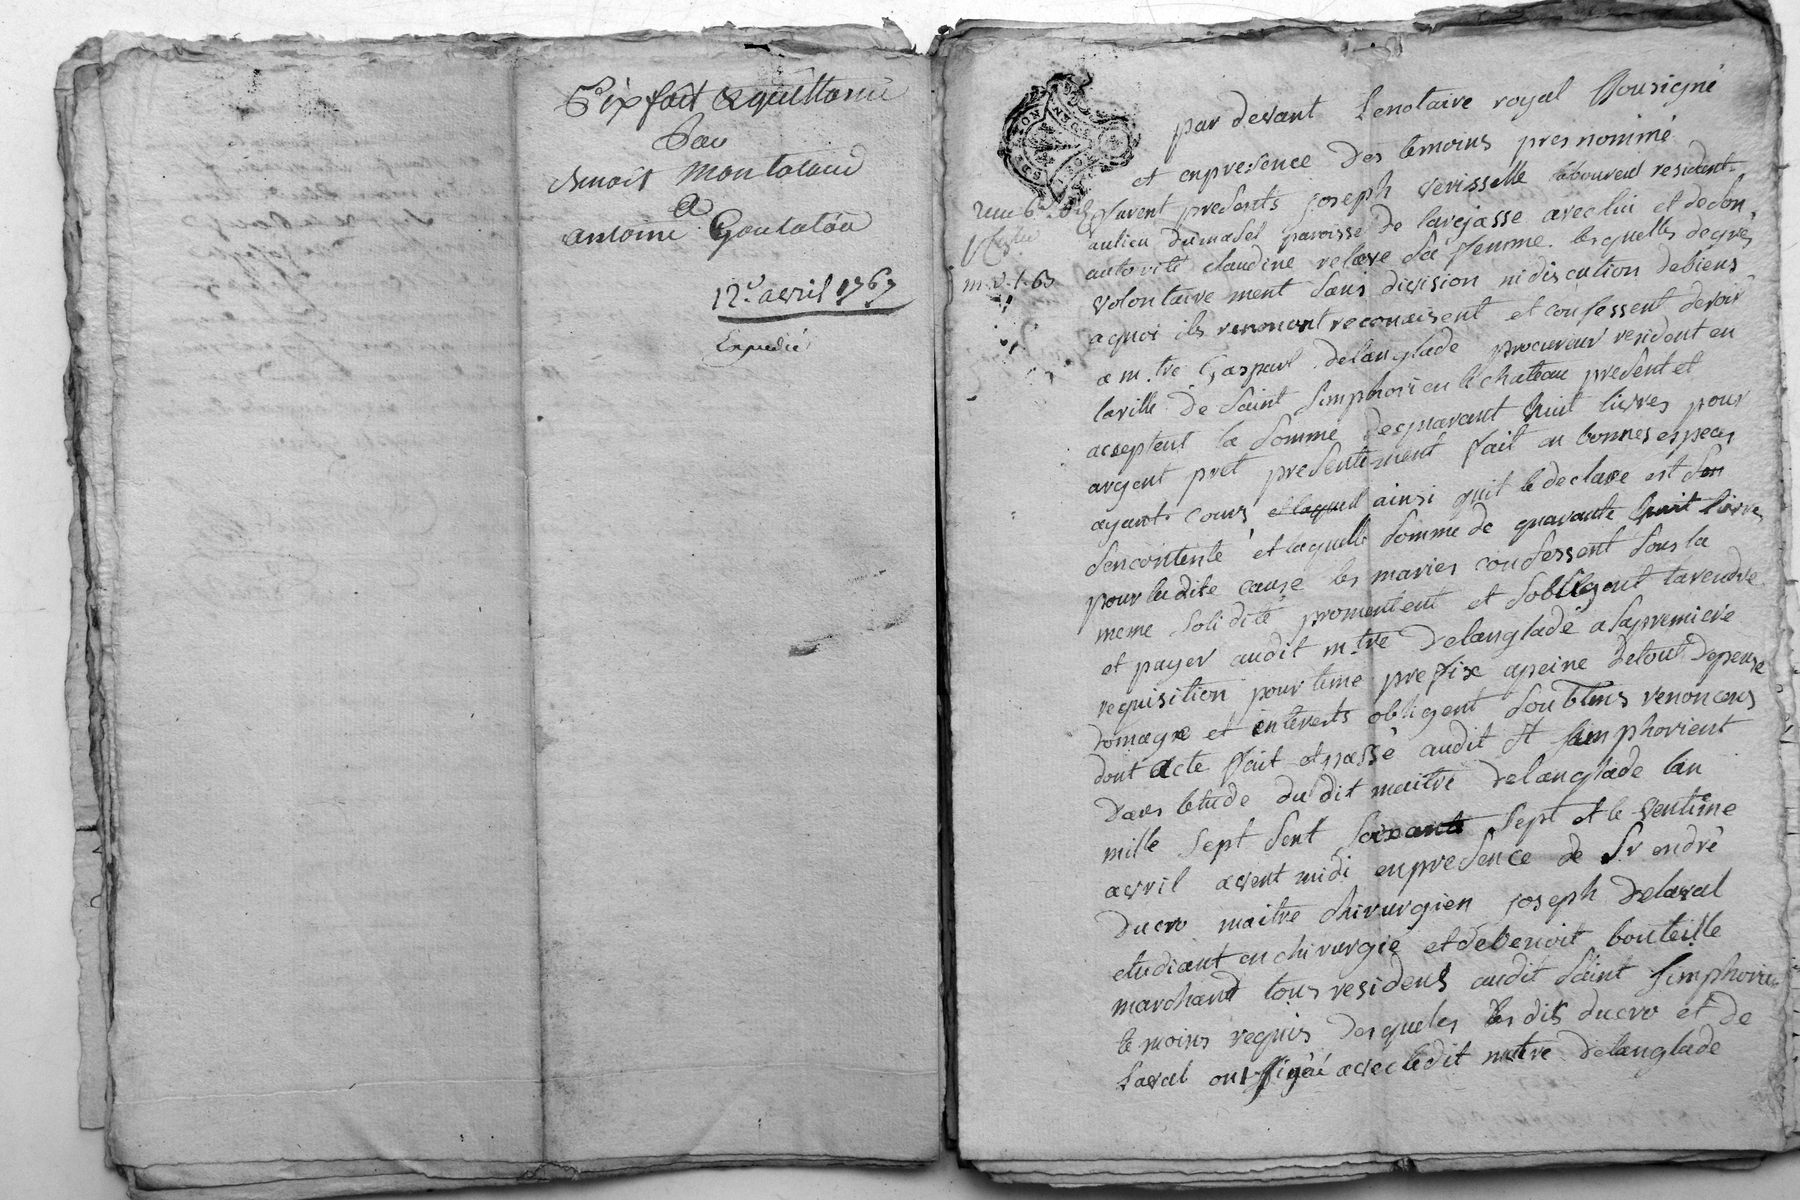 Prixfait & quittance
Par
Benoit Montaland
A
antoine Goutaláu
12.e avril 1767
Expedié
par devant Lenotaire royal Sousigné
et enpresence Des temoins presnommé
furent presents joseph verisselle laboureur resident
aulieu dumasel paroisse de larejasse aveclui et deson
autorité claudine relave sa femme lesquelles degrés
volontairement sans division nidiscution debiens
aquoi ils renoncent reconaisent et confessent devoir
a m.tre Gaspart delanglade procureur resident en
laville de Saint Simphorien le chateau present et
acseptent la somme dequarant huit livres pour
argent pret presentement fait en bonnes especes
ayant cours et laquell ainsi quil le declare est son
sencontente et laquelle somme de quarante huit livres
pour ladite cause les maries confessent sous la
meme solidité promentent et sobligent larendre
et payer audit m.tre delanglade asapremiere
requisition pour time prefix apeine detout depense
domage et interests obligent soubtms renoncens
dont acte fait et passé audit St simphorient
Dans letude dudit maitre delanglade lan
mille sept sent soixante sept et le ventime
avril avent midi enpresence de Sr endré
Ducro maitre chirurgien joseph Delaval
etudiant en chirurgie et de benoit bouteille
marchand tous residens audit saint simphorien
temoins requis desqueles les dits ducro et de
Laval ont signé avec ledit maitre delanglade